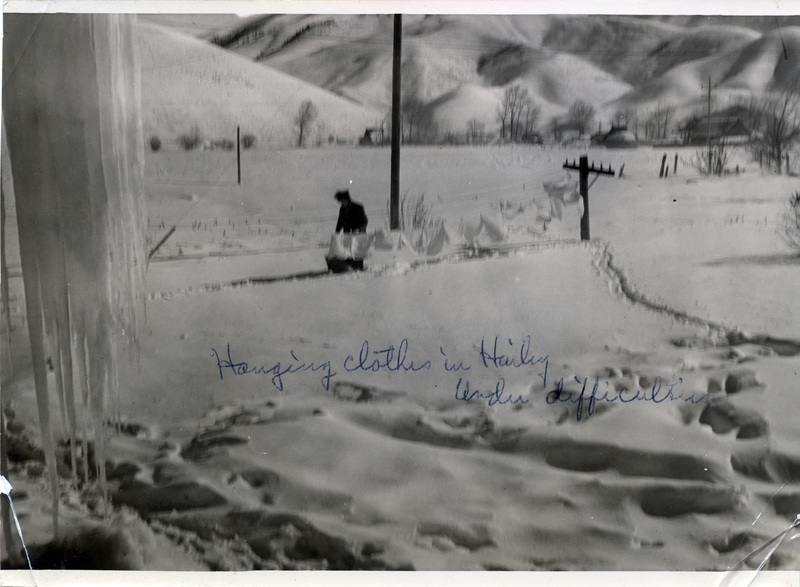 Hanging clothes in Hailey
Under difficulties